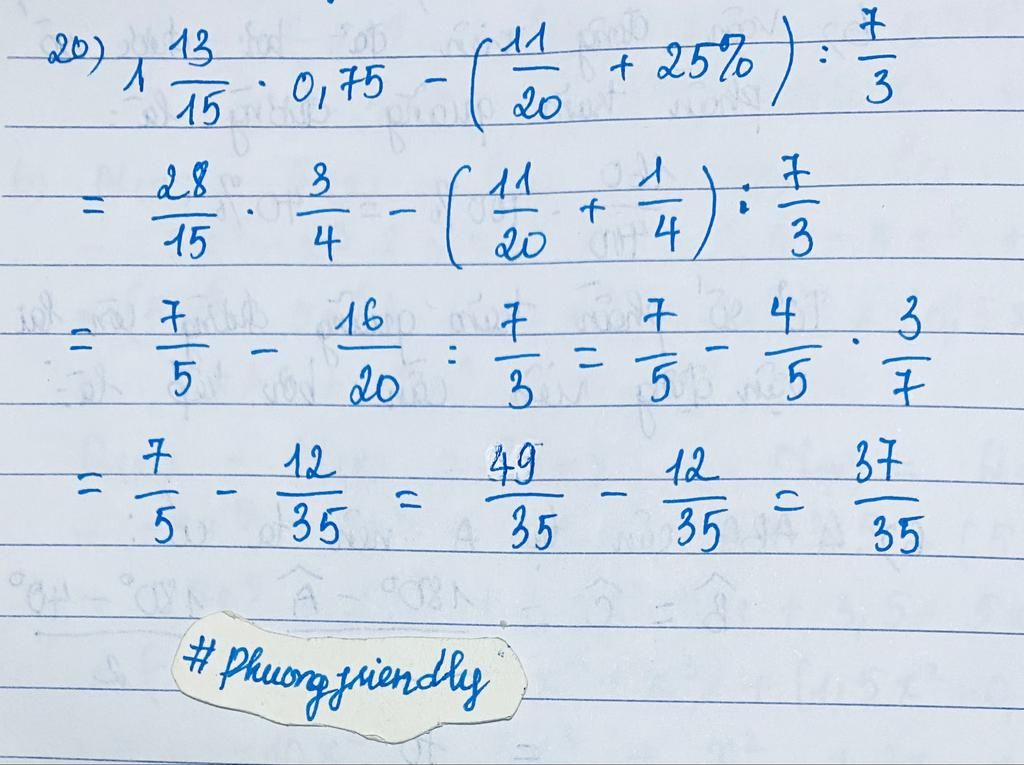 20) 1 13/15 . 0,75 - (11/20 + 25%) : 7/3
= 28/15 . 3/4 - (11/20 + 1/4) : 7/3
= 7/5 - 16/20 : 7/3 = 7/5 - 4/5 . 3/7
= 7/5 - 12/35 = 49/35 - 12/35 = 37/35
#phuongfriendly